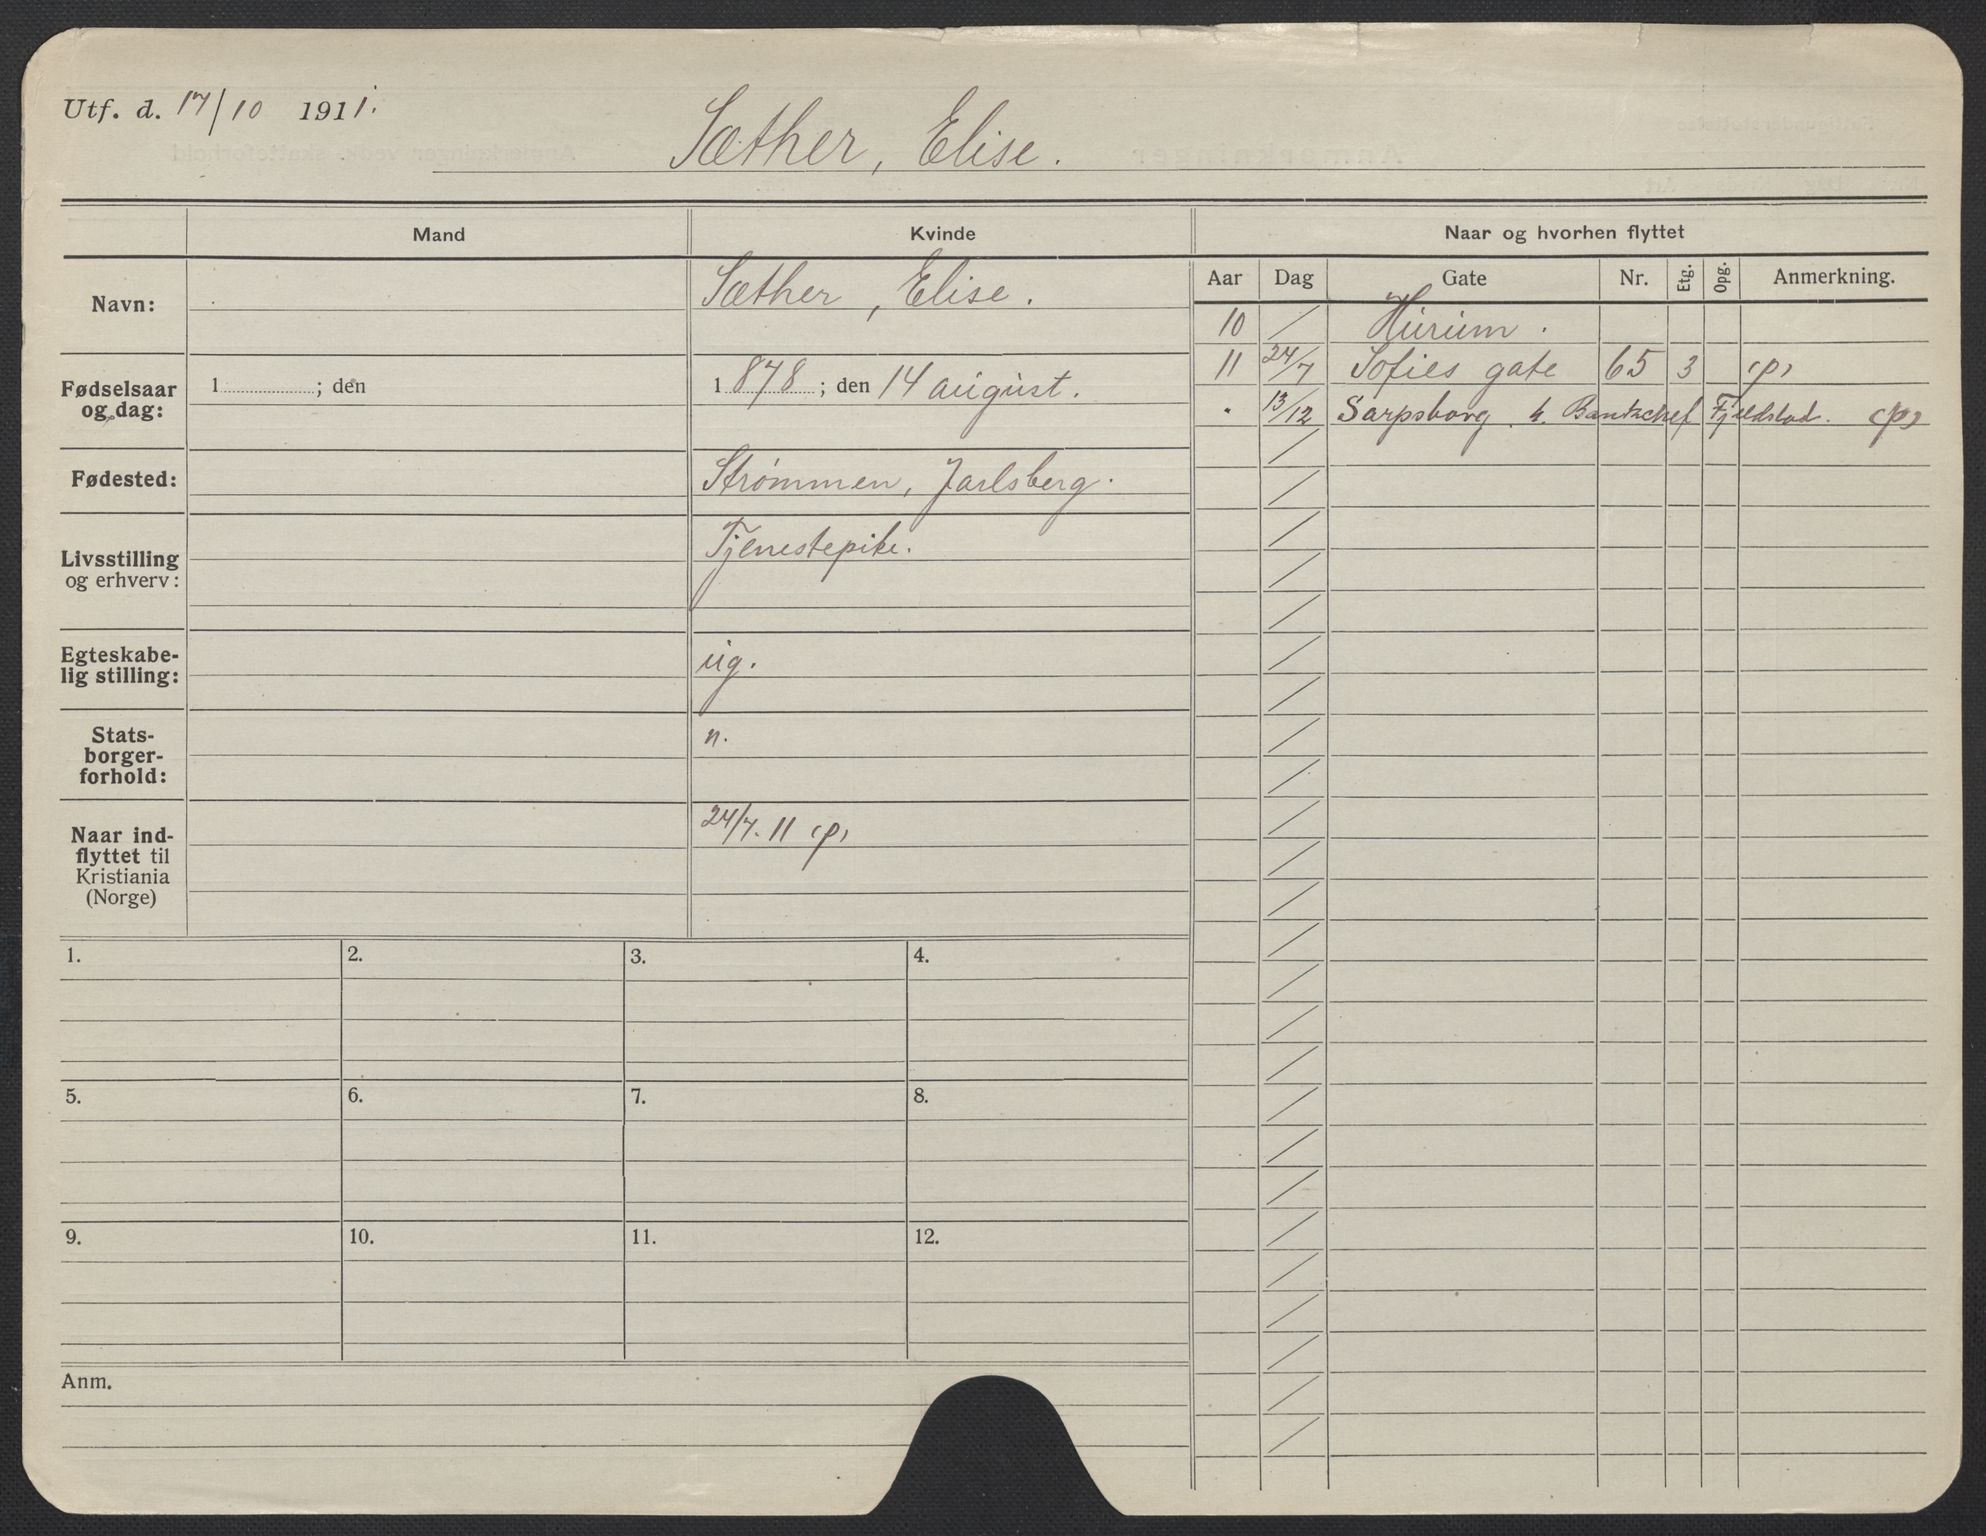 Utf. d. 17/10 1911.
Sæther, Elise.
Mand
Kvinde
Naar og hvorhen flyttet
Navn:
Sæther, Elise.
Fødselsaar og dag:
1 ; den
1 878 ; den 14 august.
Fødested:
Strømmen, Jarlsberg.
Livsstilling og erhverv:
Tjenestepike.
Egteskabe-
lig stilling:
ug.
Stats-
borger-
forhold:
n.
Naar ind-
flyttet til
Kristiania
(Norge)
24/7. 11 (p)
Aar Dag Gate Nr. Etg. Opg. Anmerkning.
10 / Hurum.
11 24/7 Sofies gate 65 3 (p)
" 13/12 Sarpsborg. h. Bankchef Fjeldstad. (p)
1. 2. 3. 4.
5. 6. 7. 8.
9. 10. 11. 12.
Anm.